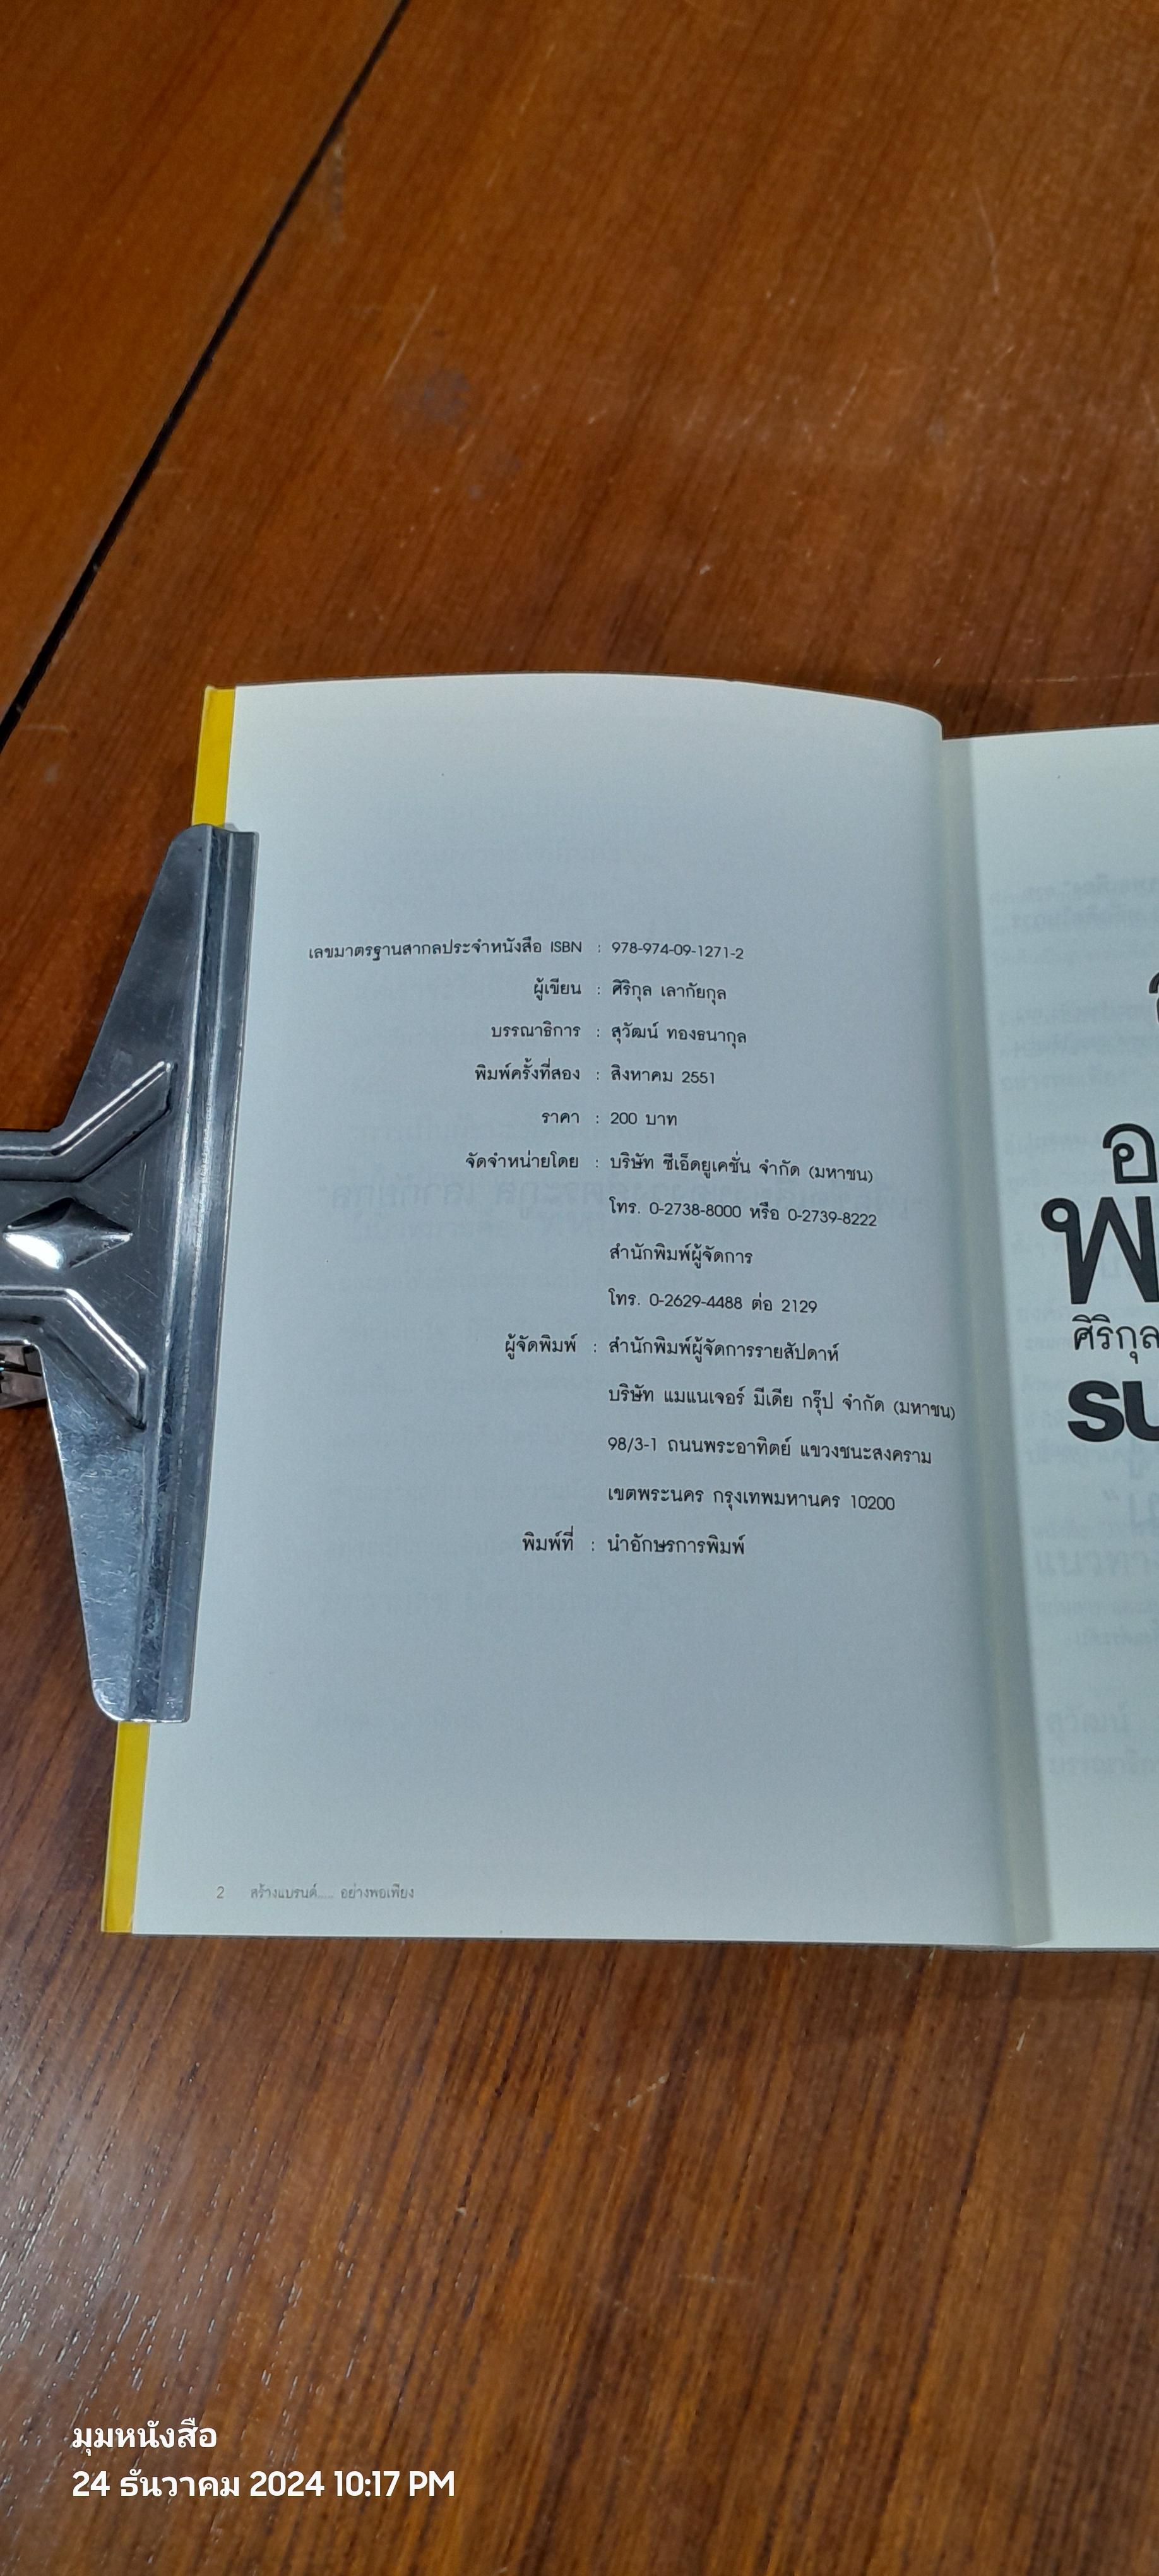 เลขมาตรฐานสากลประจำหนังสือ ISBN : 978-974-09-1271-2
ผู้เขียน : ศิริกุล เลากัยกุล
บรรณาธิการ : สุวัฒน์ ทองธนากุล
พิมพ์ครั้งที่สอง : สิงหาคม 2551
ราคา : 200 บาท
จัดจำหน่ายโดย : บริษัท ซีเอ็ดยูเคชั่น จำกัด (มหาชน)
โทร. 0-2738-8000 หรือ 0-2739-8222
สำนักพิมพ์ผู้จัดการ
โทร. 0-2629-4488 ต่อ 2129
ผู้จัดพิมพ์ : สำนักพิมพ์ผู้จัดการรายสัปดาห์
บริษัท แมแนเจอร์ มีเดีย กรุ๊ป จำกัด (มหาชน)
98/3-1 ถนนพระอาทิตย์ แขวงชนะสงคราม
เขตพระนคร กรุงเทพมหานคร 10200
พิมพ์ที่ : นำอักษรการพิมพ์
2 สร้างแบรนด์..... อย่างพอเพียง
อ
พ
ศิริกุล
su
มุมหนังสือ
24 ธันวาคม 2024 10:17 PM